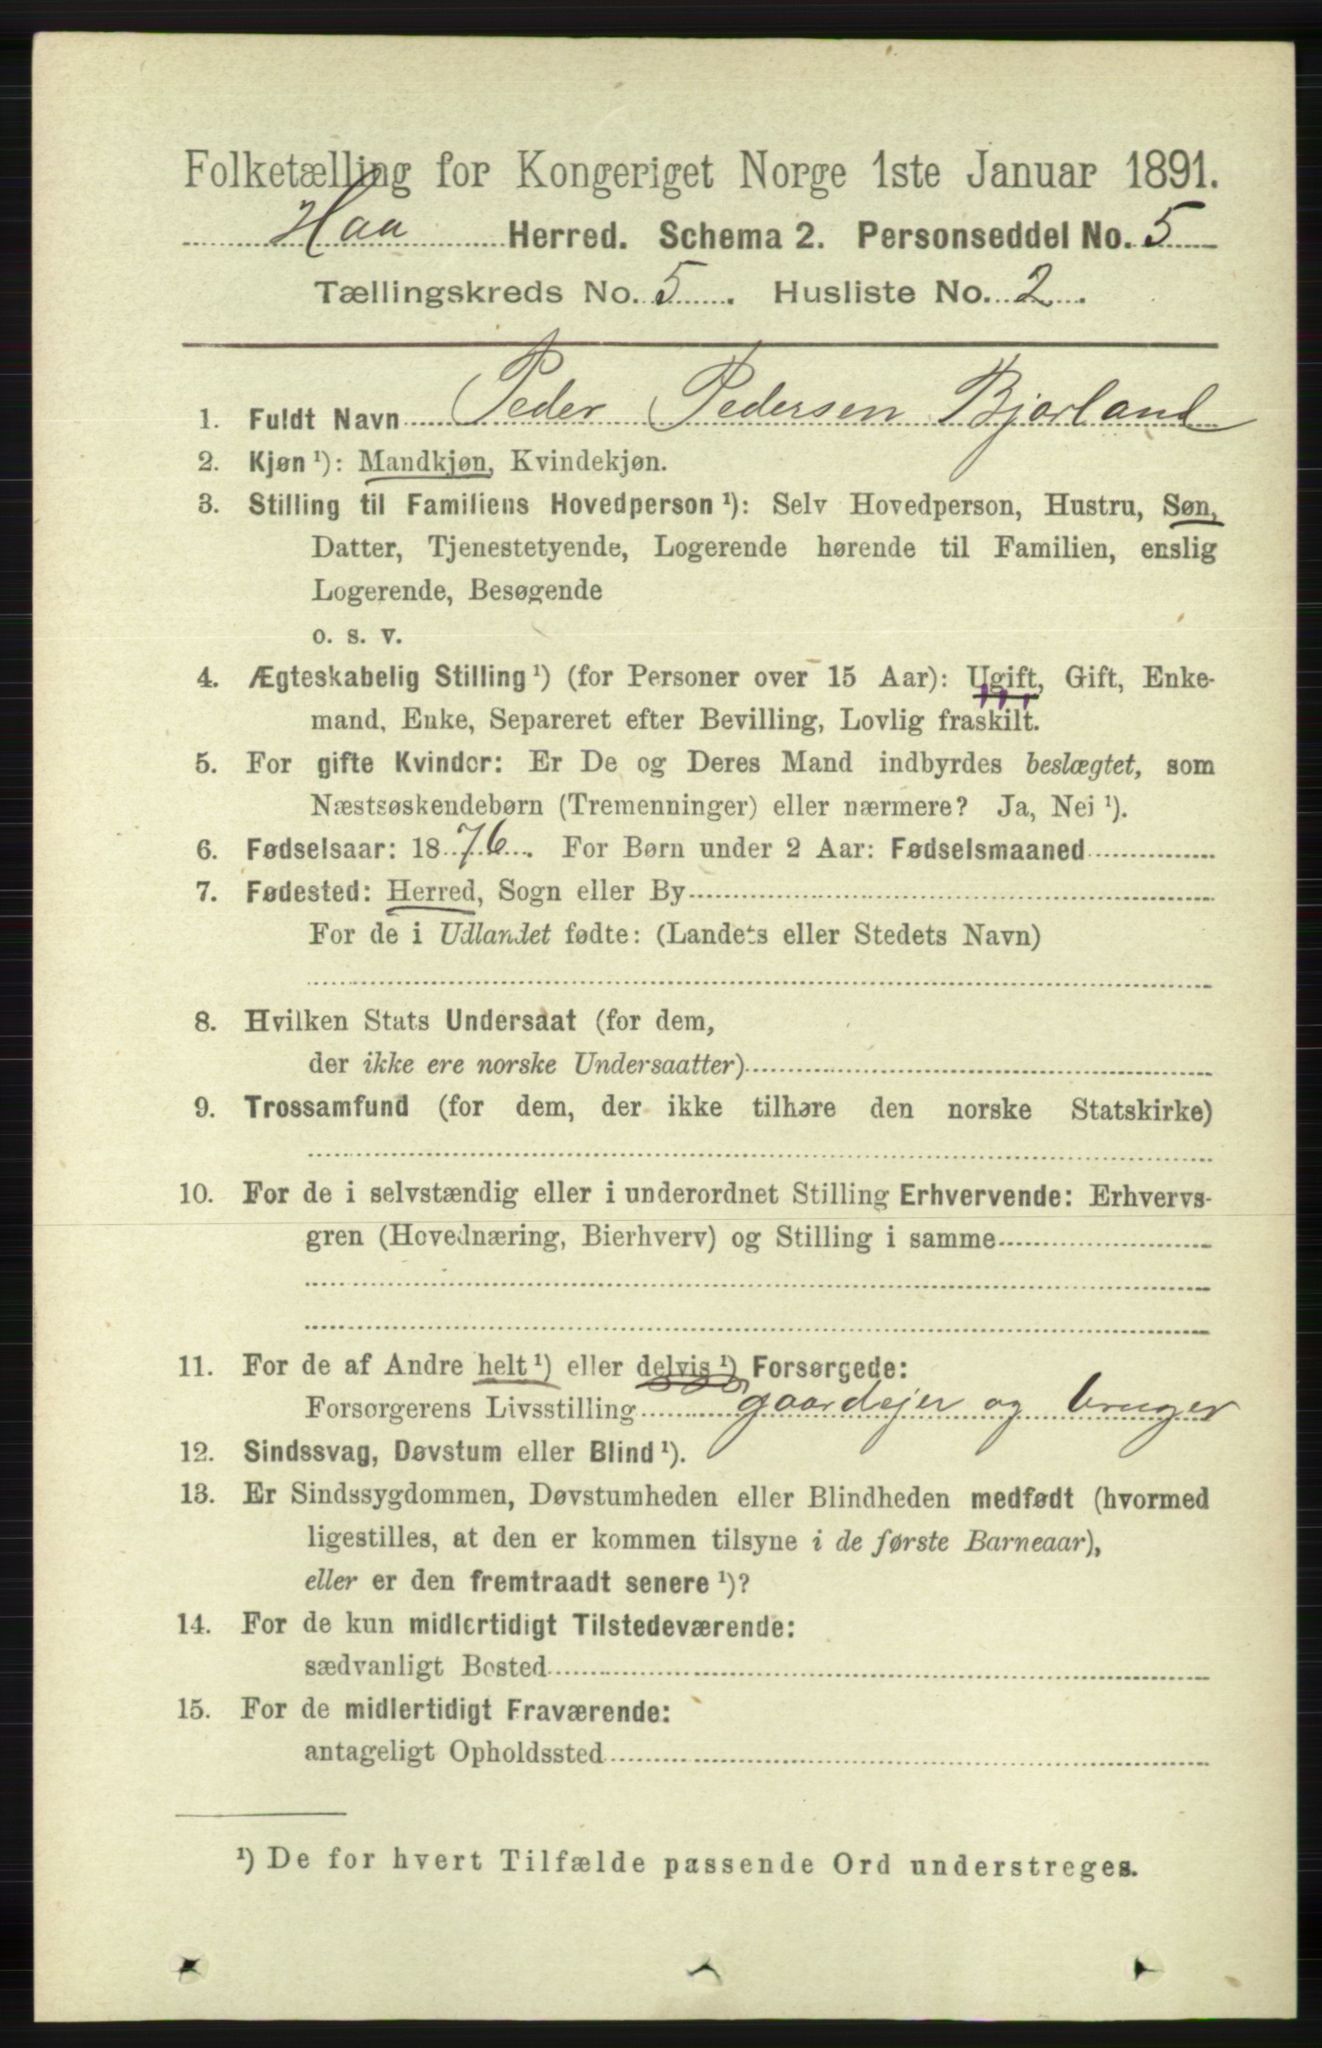 Folketælling for Kongeriget Norge 1ste Januar 1891.
Haa Herred. Schema 2. Personseddel No. 5
Tællingskreds No. 5. Husliste No. 2.
1. Fuldt Navn Peder Pedersen Bjorland
2. Kjøn ¹): Mandkjøn, Kvindekjøn.
3. Stilling til Familiens Hovedperson ¹): Selv Hovedperson, Hustru, Søn,
Datter, Tjenestetyende, Logerende hørende til Familien, enslig
Logerende, Besøgende
o. s. v.
4. Ægteskabelig Stilling ¹) (for Personer over 15 Aar): Ugift, Gift, Enke-
mand, Enke, Separeret efter Bevilling, Lovlig fraskilt.
5. For gifte Kvinder: Er De og Deres Mand indbyrdes beslægtet, som
Næstsøskendebørn (Tremenninger) eller nærmere? Ja, Nei ¹).
6. Fødselsaar: 1876. For Børn under 2 Aar: Fødselsmaaned
7. Fødested: Herred, Sogn eller By
For de i Udlandet fødte: (Landets eller Stedets Navn)
8. Hvilken Stats Undersaat (for dem,
der ikke ere norske Undersaatter)
9. Trossamfund (for dem, der ikke tilhøre den norske Statskirke)
10. For de i selvstændig eller i underordnet Stilling Erhvervende: Erhvervs-
gren (Hovednæring, Bierhverv) og Stilling i samme
11. For de af Andre helt ¹) eller delvis ¹) Forsørgede:
Forsorgerens Livsstilling gaardejer og bruger
12. Sindssvag, Døvstum eller Blind ¹).
13. Er Sindssygdommen, Døvstumheden eller Blindheden medfødt (hvormed
ligestilles, at den er kommen tilsyne i de første Barneaar),
eller er den fremtraadt senere ¹)?
14. For de kun midlertidigt Tilstedeværende:
sædvanligt Bosted
15. For de midlertidigt Fraværende:
antageligt Opholdssted
¹) De for hvert Tilfælde passende Ord understreges.